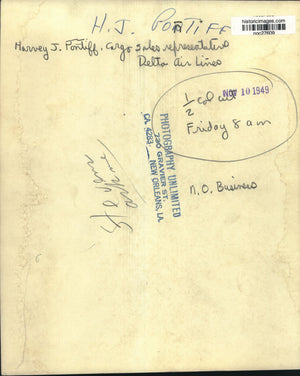 historicimages.com
H. J. PONTIFF
Harvey J. Pontiff, Cargo sales representative
Delta Air Lines
NOV 10 1949
1/2 col cut
Friday 8 am
PHOTOGRAPHY UNLIMITED
730 GRAVIER ST.
CA. 4283 — NEW ORLEANS, LA.
N.O. Business